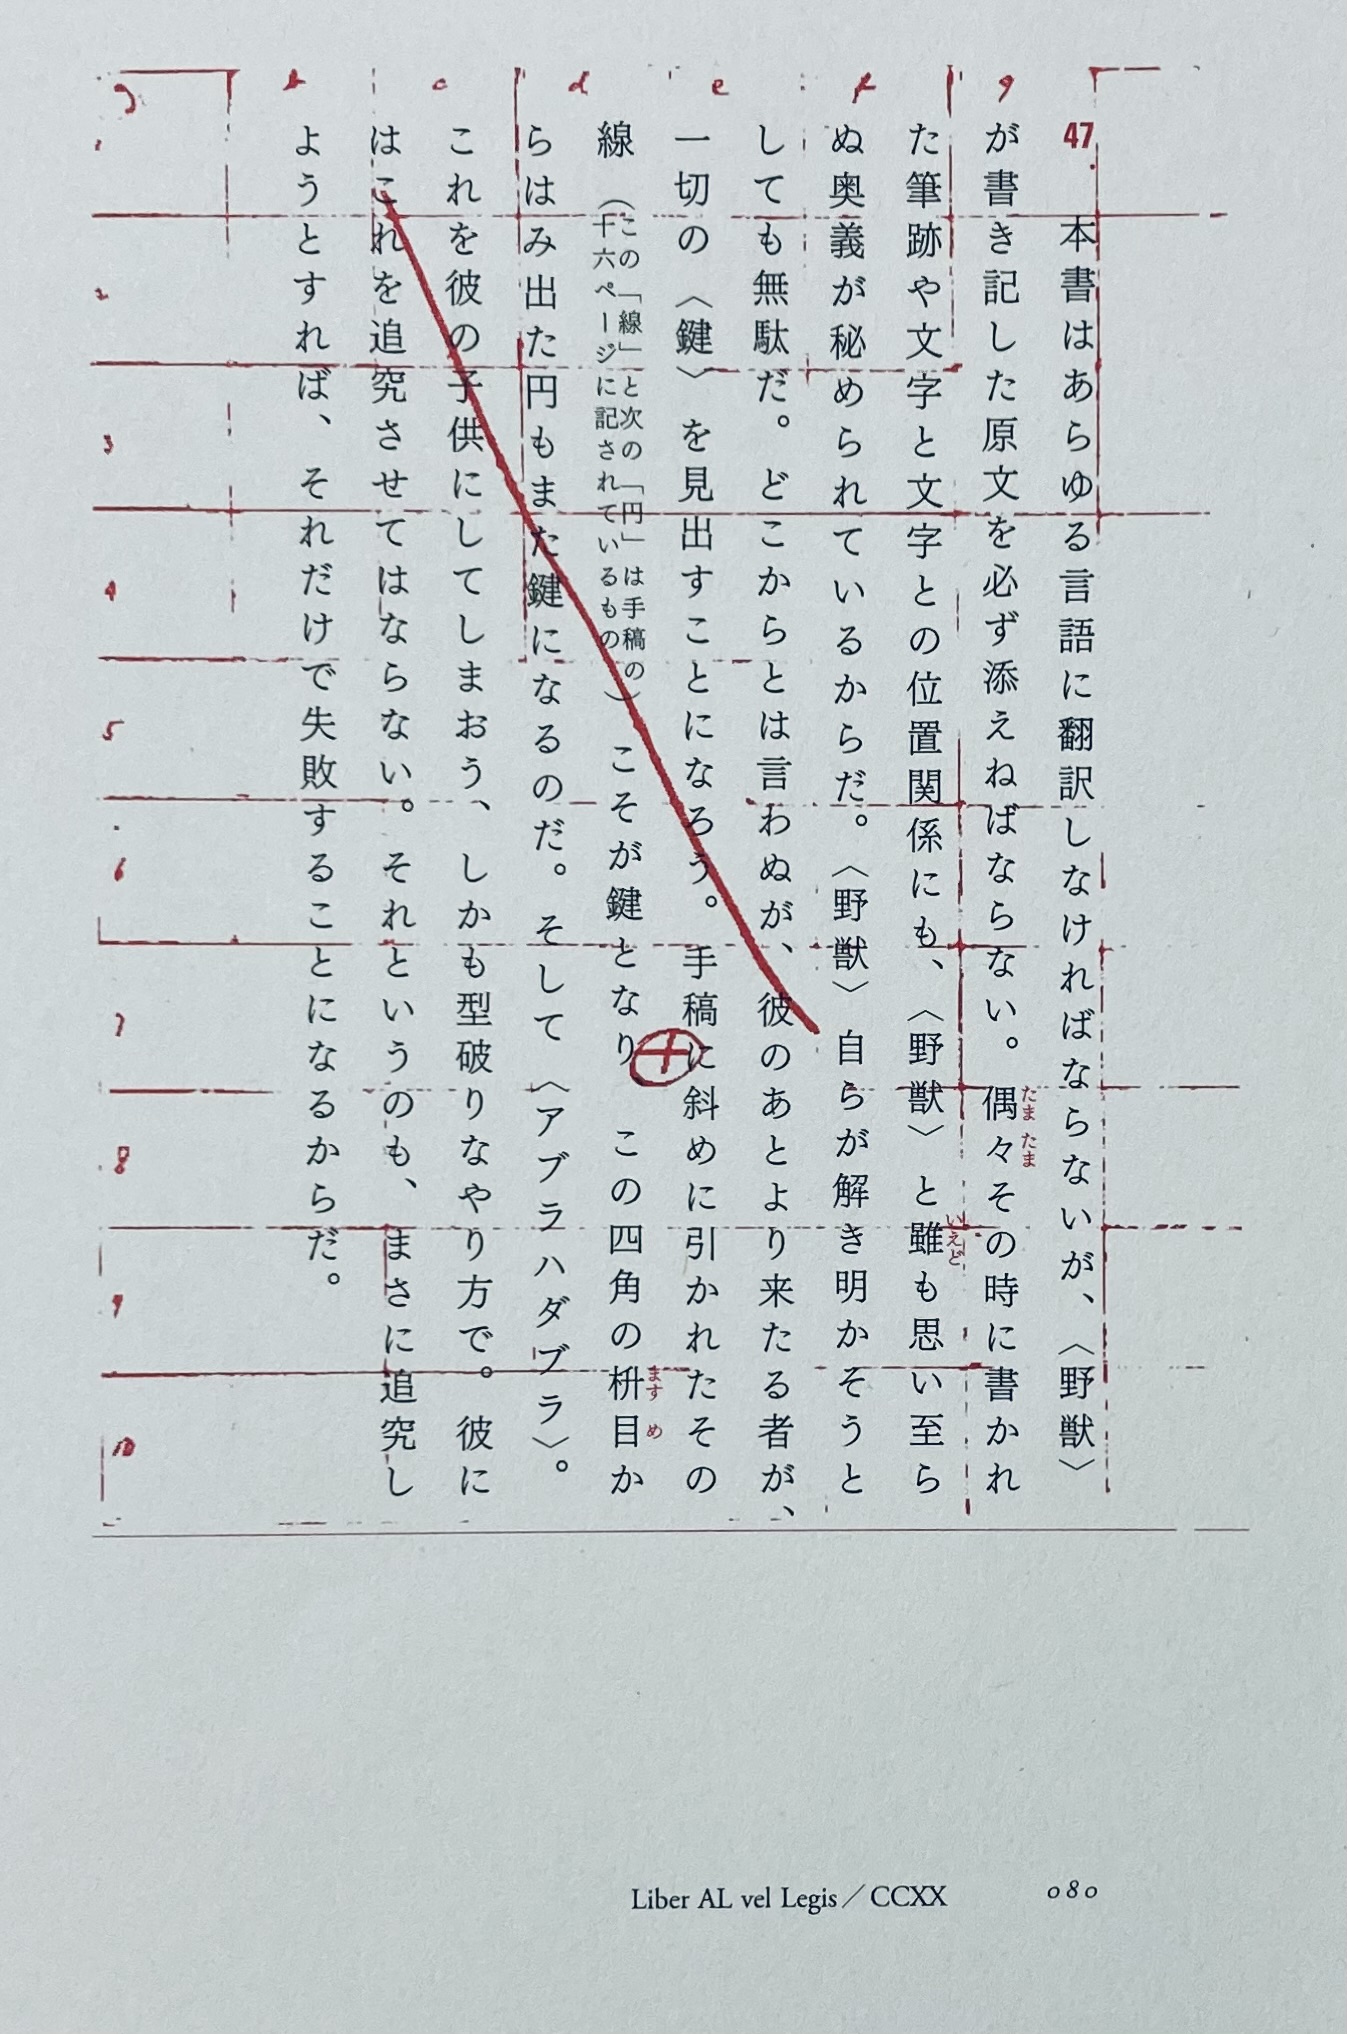 47. 本書はあらゆる言語に翻訳しなければならないが、〈野獣〉
が書き記した原文を必ず添えねばならない。偶々その時に書かれ
たまたま
た筆跡や文字と文字との位置関係にも、〈野獣〉と雖も思い至ら
いえど
ぬ奥義が秘められているからだ。〈野獣〉自らが解き明かそうと
しても無駄だ。どこからとは言わぬが、彼のあとより来たる者が、
一切の〈鍵〉を見出すことになろう。手稿に斜めに引かれたその
線（この「線」と次の「円」は手稿の十六ページに記されているもの）こそが鍵となり この四角の枡目か
ますめ
らはみ出た円もまた鍵になるのだ。そして〈アブラハダブラ〉。
これを彼の子供にしてしまおう、しかも型破りなやり方で。彼に
はこれを追究させてはならない。それというのも、まさに追究し
ようとすれば、それだけで失敗することになるからだ。
b c d e f g
1
2
3
4
5
6
7
8
9
10
Liber AL vel Legis／CCXX
080